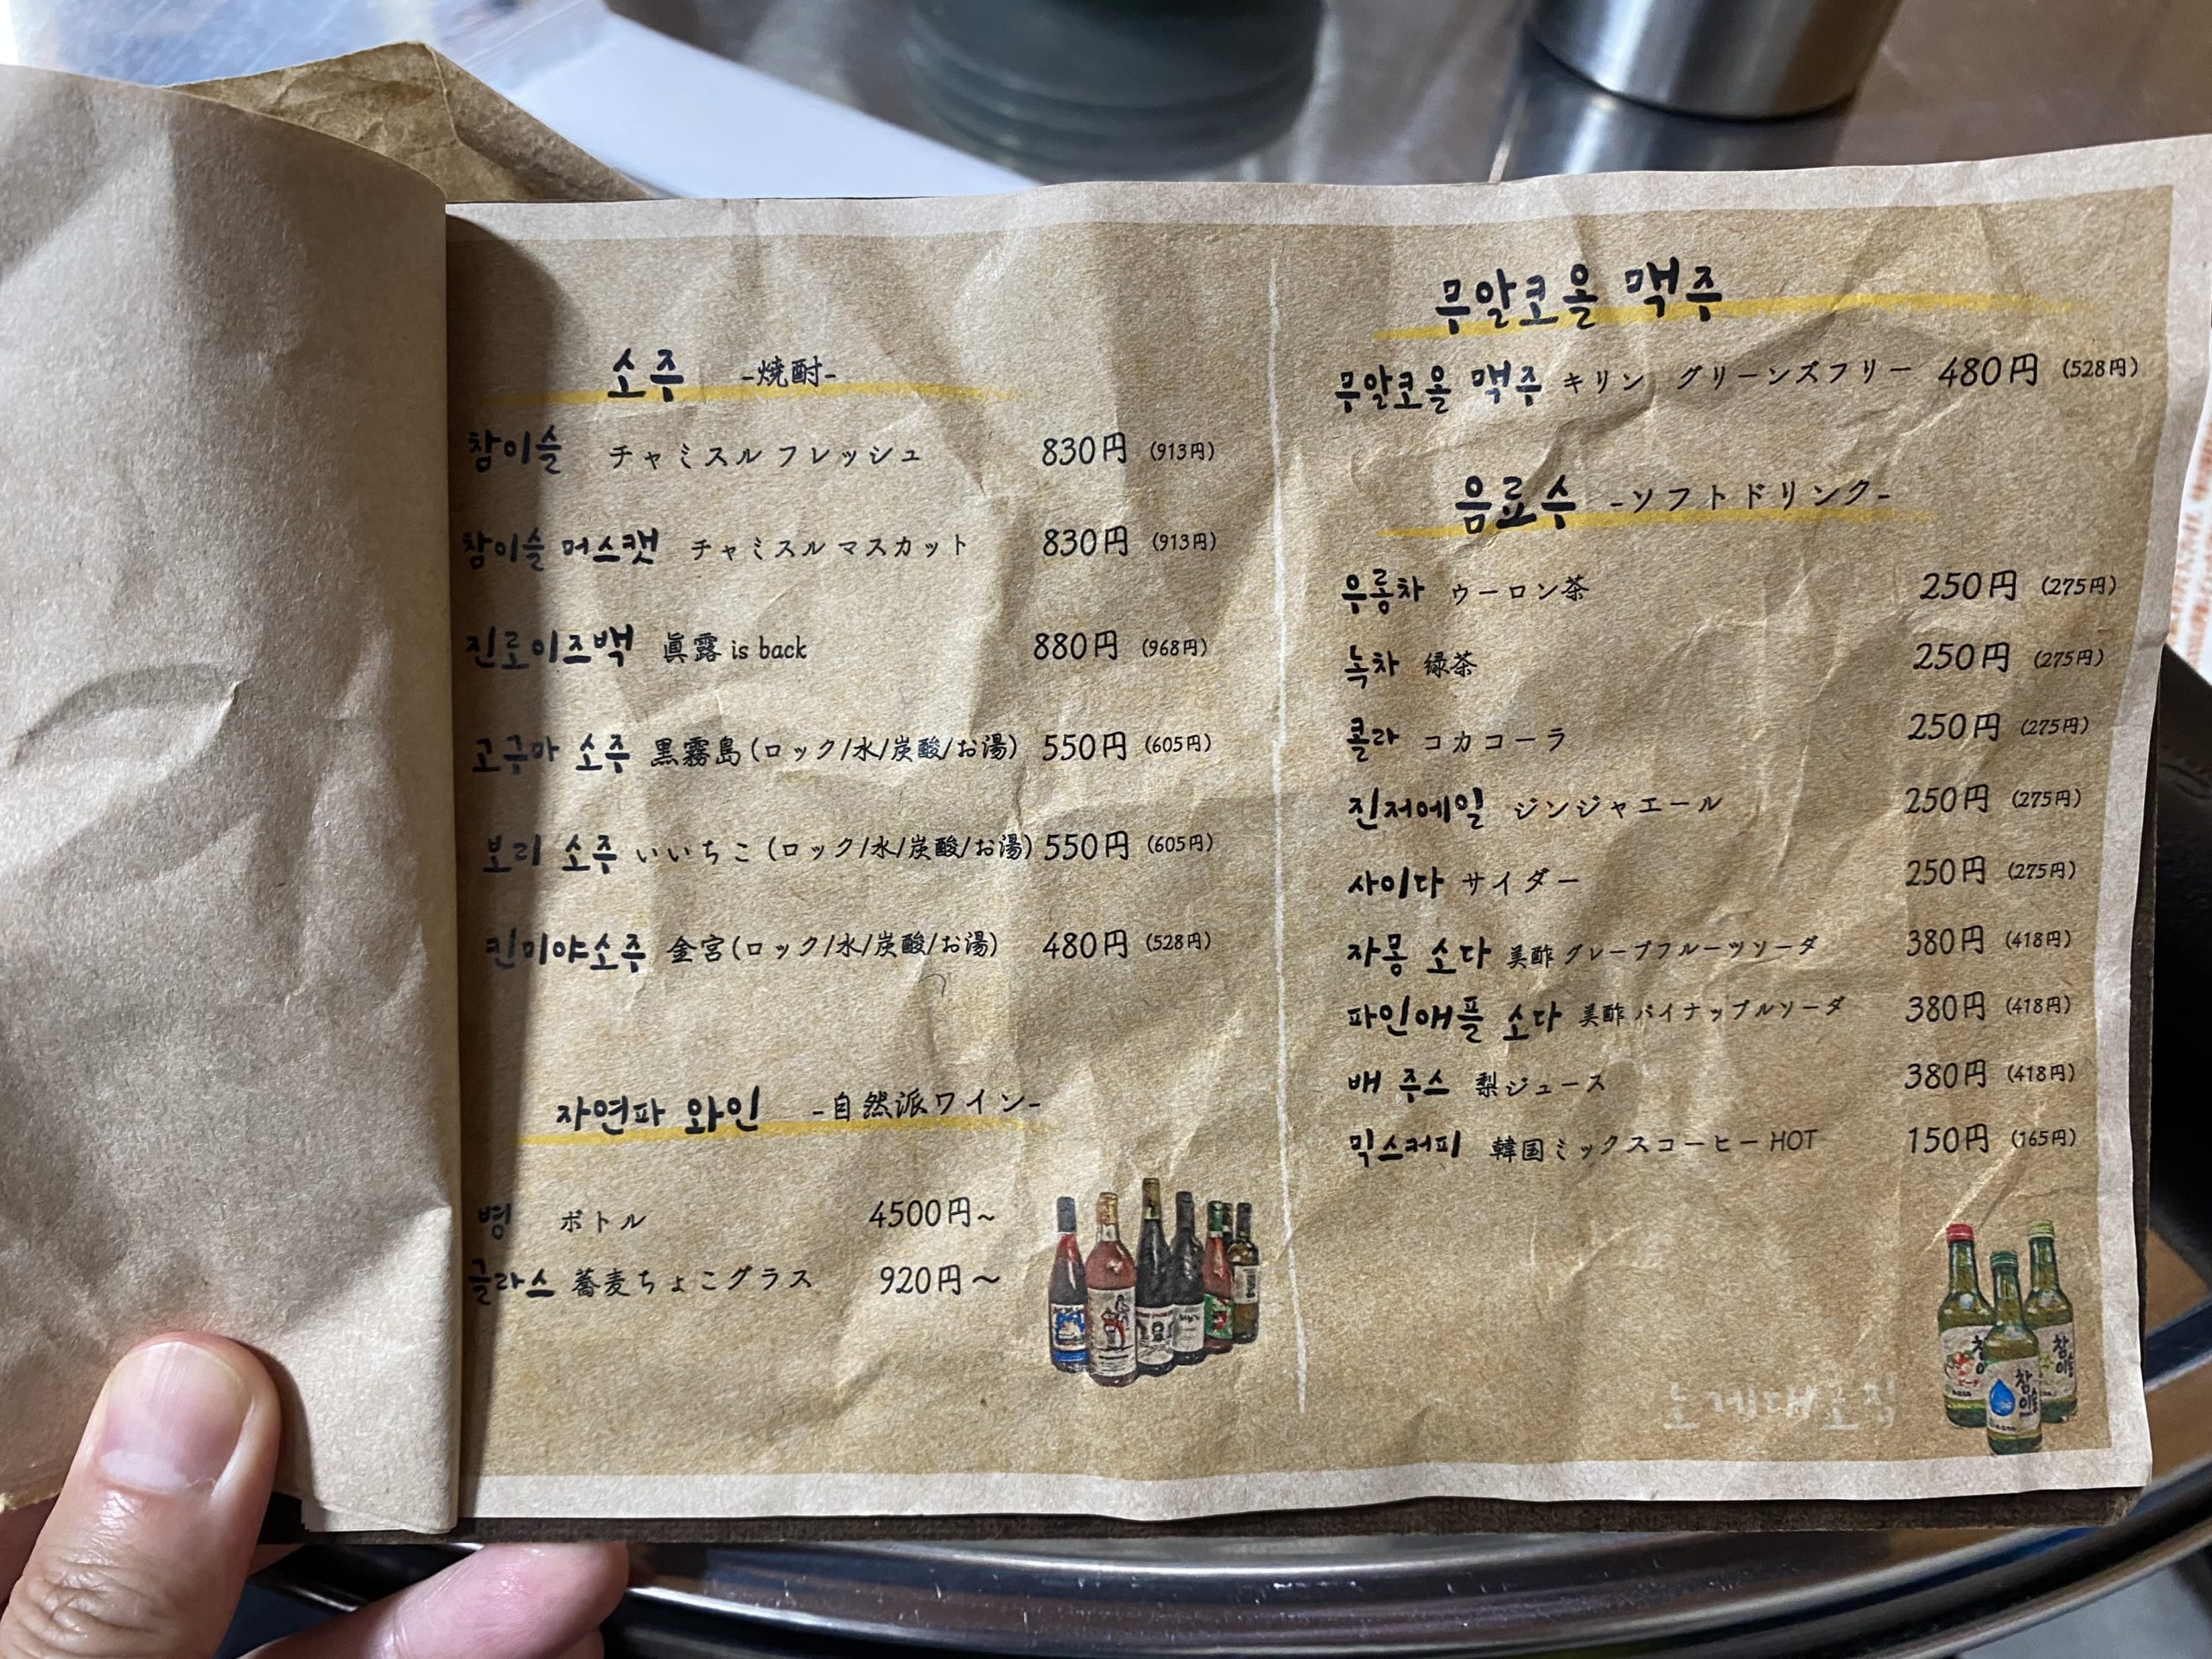 소주 -焼酎-
참이슬 チャミスル フレッシュ 830円 (913円)
참이슬 머스캣 チャミスル マスカット 830円 (913円)
진로이즈백 眞露 is back 880円 (968円)
고구마 소주 黒霧島(ロック/水/炭酸/お湯) 550円 (605円)
보리 소주 いいちこ(ロック/水/炭酸/お湯) 550円 (605円)
킨미야소주 金宮(ロック/水/炭酸/お湯) 480円 (528円)
자연파 와인 -自然派ワイン-
병 ボトル 4500円~
글라스 蕎麦ちょこグラス 920円~
무알코올 맥주
무알코올 맥주 キリン グリーンズフリー 480円 (528円)
음료수 -ソフトドリンク-
우롱차 ウーロン茶 250円 (275円)
녹차 緑茶 250円 (275円)
콜라 コカコーラ 250円 (275円)
진저에일 ジンジャエール 250円 (275円)
사이다 サイダー 250円 (275円)
자몽 소다 美酢 グレープフルーツソーダ 380円 (418円)
파인애플 소다 美酢 パイナップルソーダ 380円 (418円)
배 주스 梨ジュース 380円 (418円)
믹스커피 韓国ミックスコーヒー HOT 150円 (165円)
참이슬
참이슬